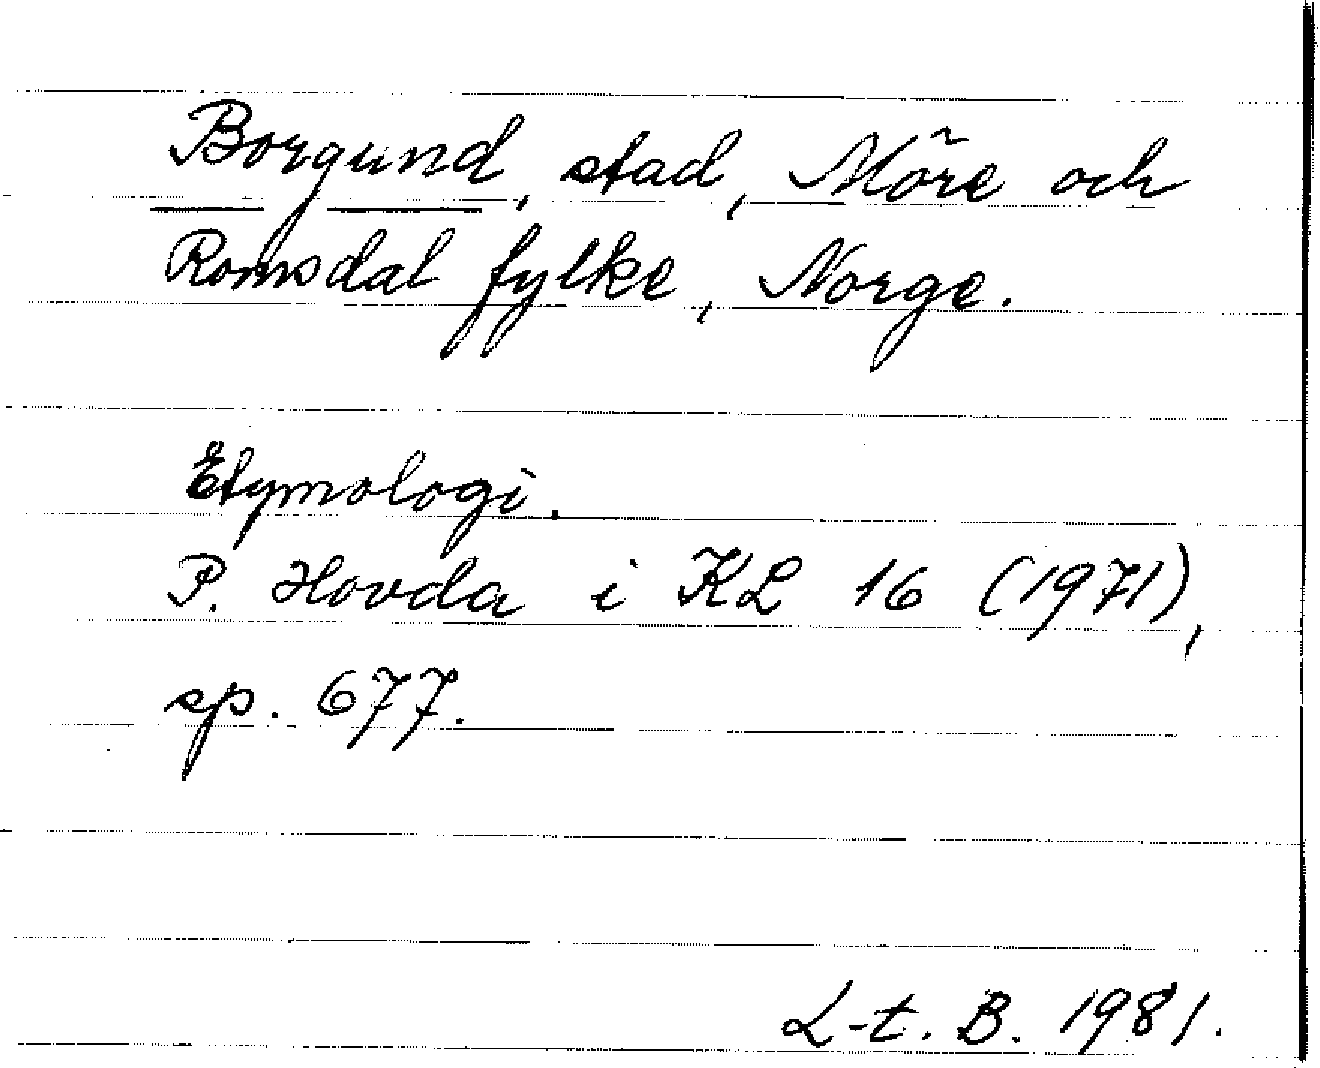 Borgund, stad, Möre och
Romsdal fylke, Norge.
Etymologi.
P. Hovda i KL 16 (1971),
sp. 677.
L-t. B. 1981.